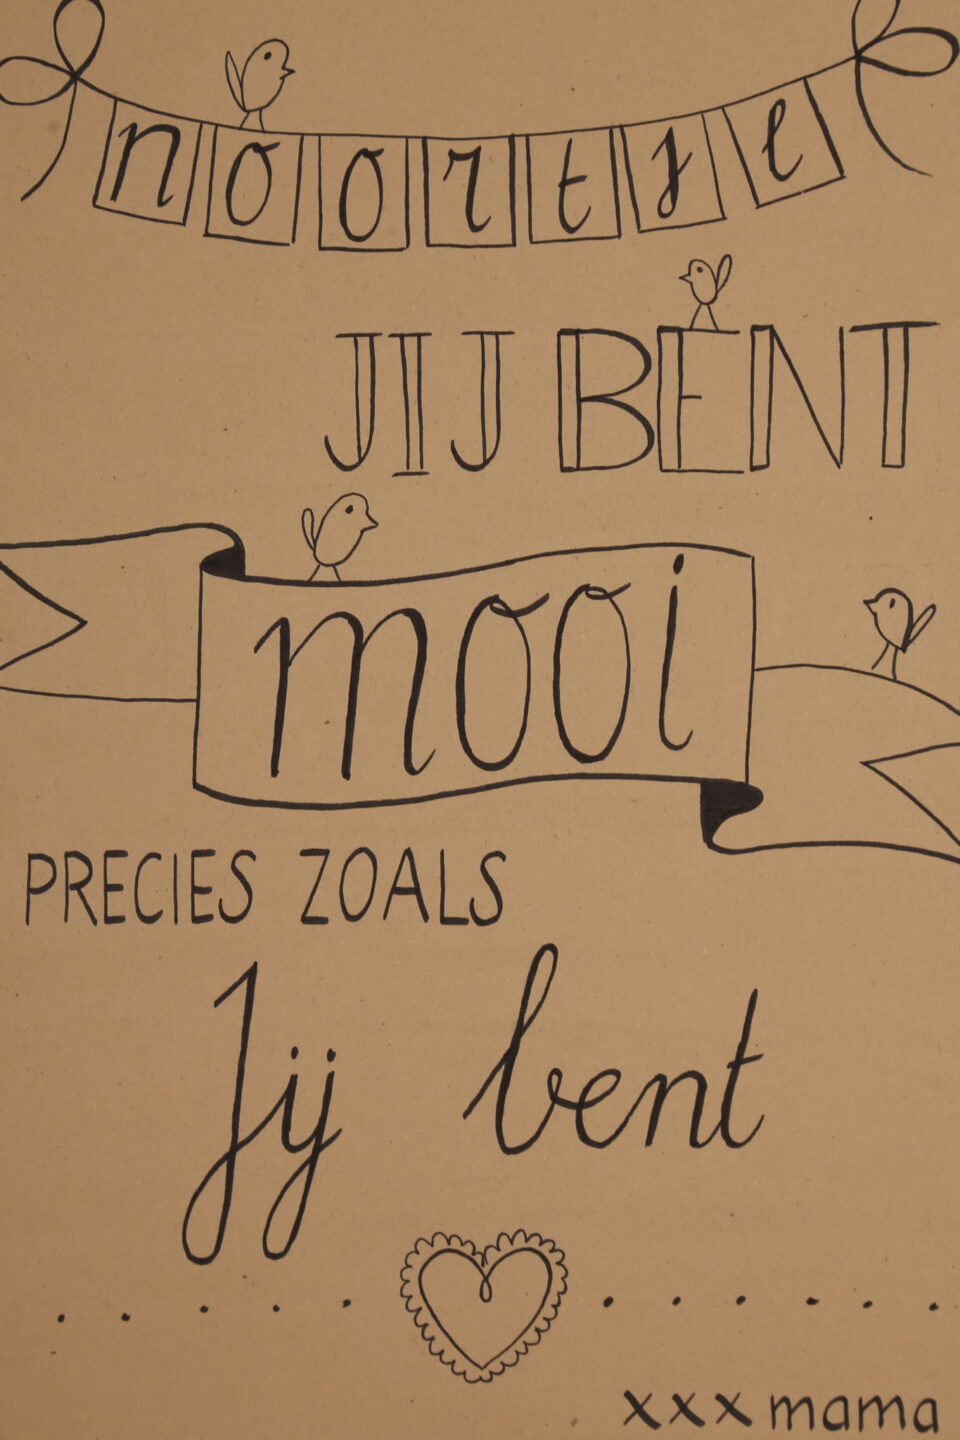 noortje
JIJ BENT
mooi
PRECIES ZOALS
Jij bent
xxx mama